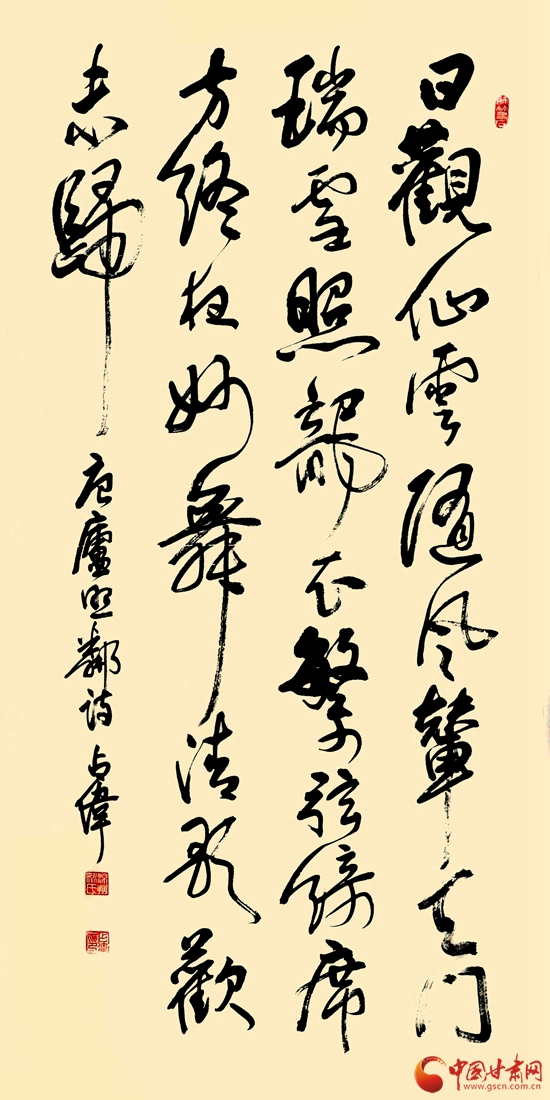 日觀仙雲隨鳳輦天門
瑞雪照龍衣繁弦綺席
方終夜妙舞清歌歡
未歸
唐盧照鄰詩 占偉
中国甘肃网
www.gscn.com.cn